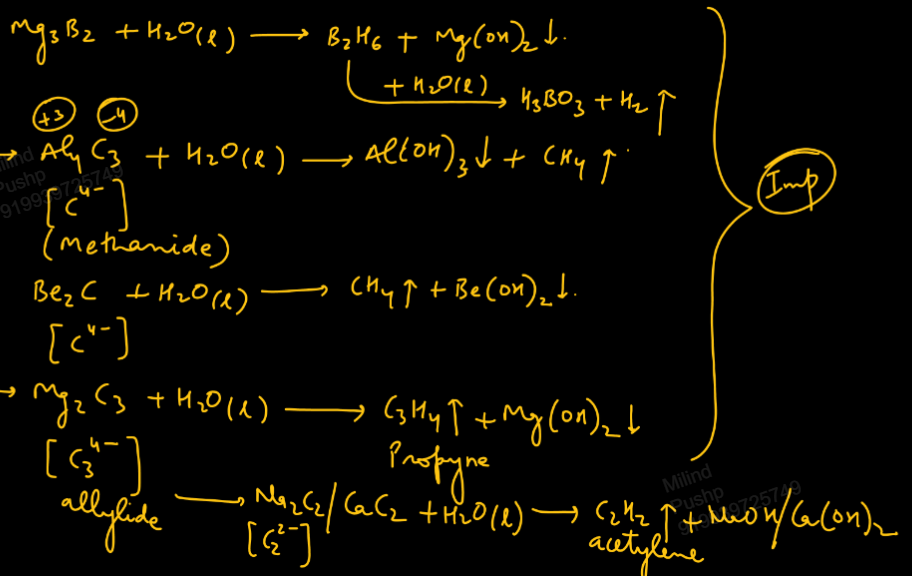 Mg₃B₂ + H₂O(l) ⟶ B₂H₆ + Mg(OH)₂↓.
+ H₂O(l) → H₃BO₃ + H₂↑
+3 -4
→ Al₄C₃ + H₂O(l) ⟶ Al(OH)₃↓ + CH₄↑
[C⁴⁻]
(Methanide)
Imp
Be₂C + H₂O(l) ⟶ CH₄↑ + Be(OH)₂↓.
[C⁴⁻]
→ Mg₂C₃ + H₂O(l) ⟶ C₃H₄↑ + Mg(OH)₂↓
[C₃⁴⁻] Propyne
allylide ⟶ Na₂C₂/CaC₂ + H₂O(l) ⟶ C₂H₂↑ + NaOH/Ca(OH)₂
[C₂²⁻] acetylene
Milind
Pushp
919939725749
Milind
Pushp
919939725749